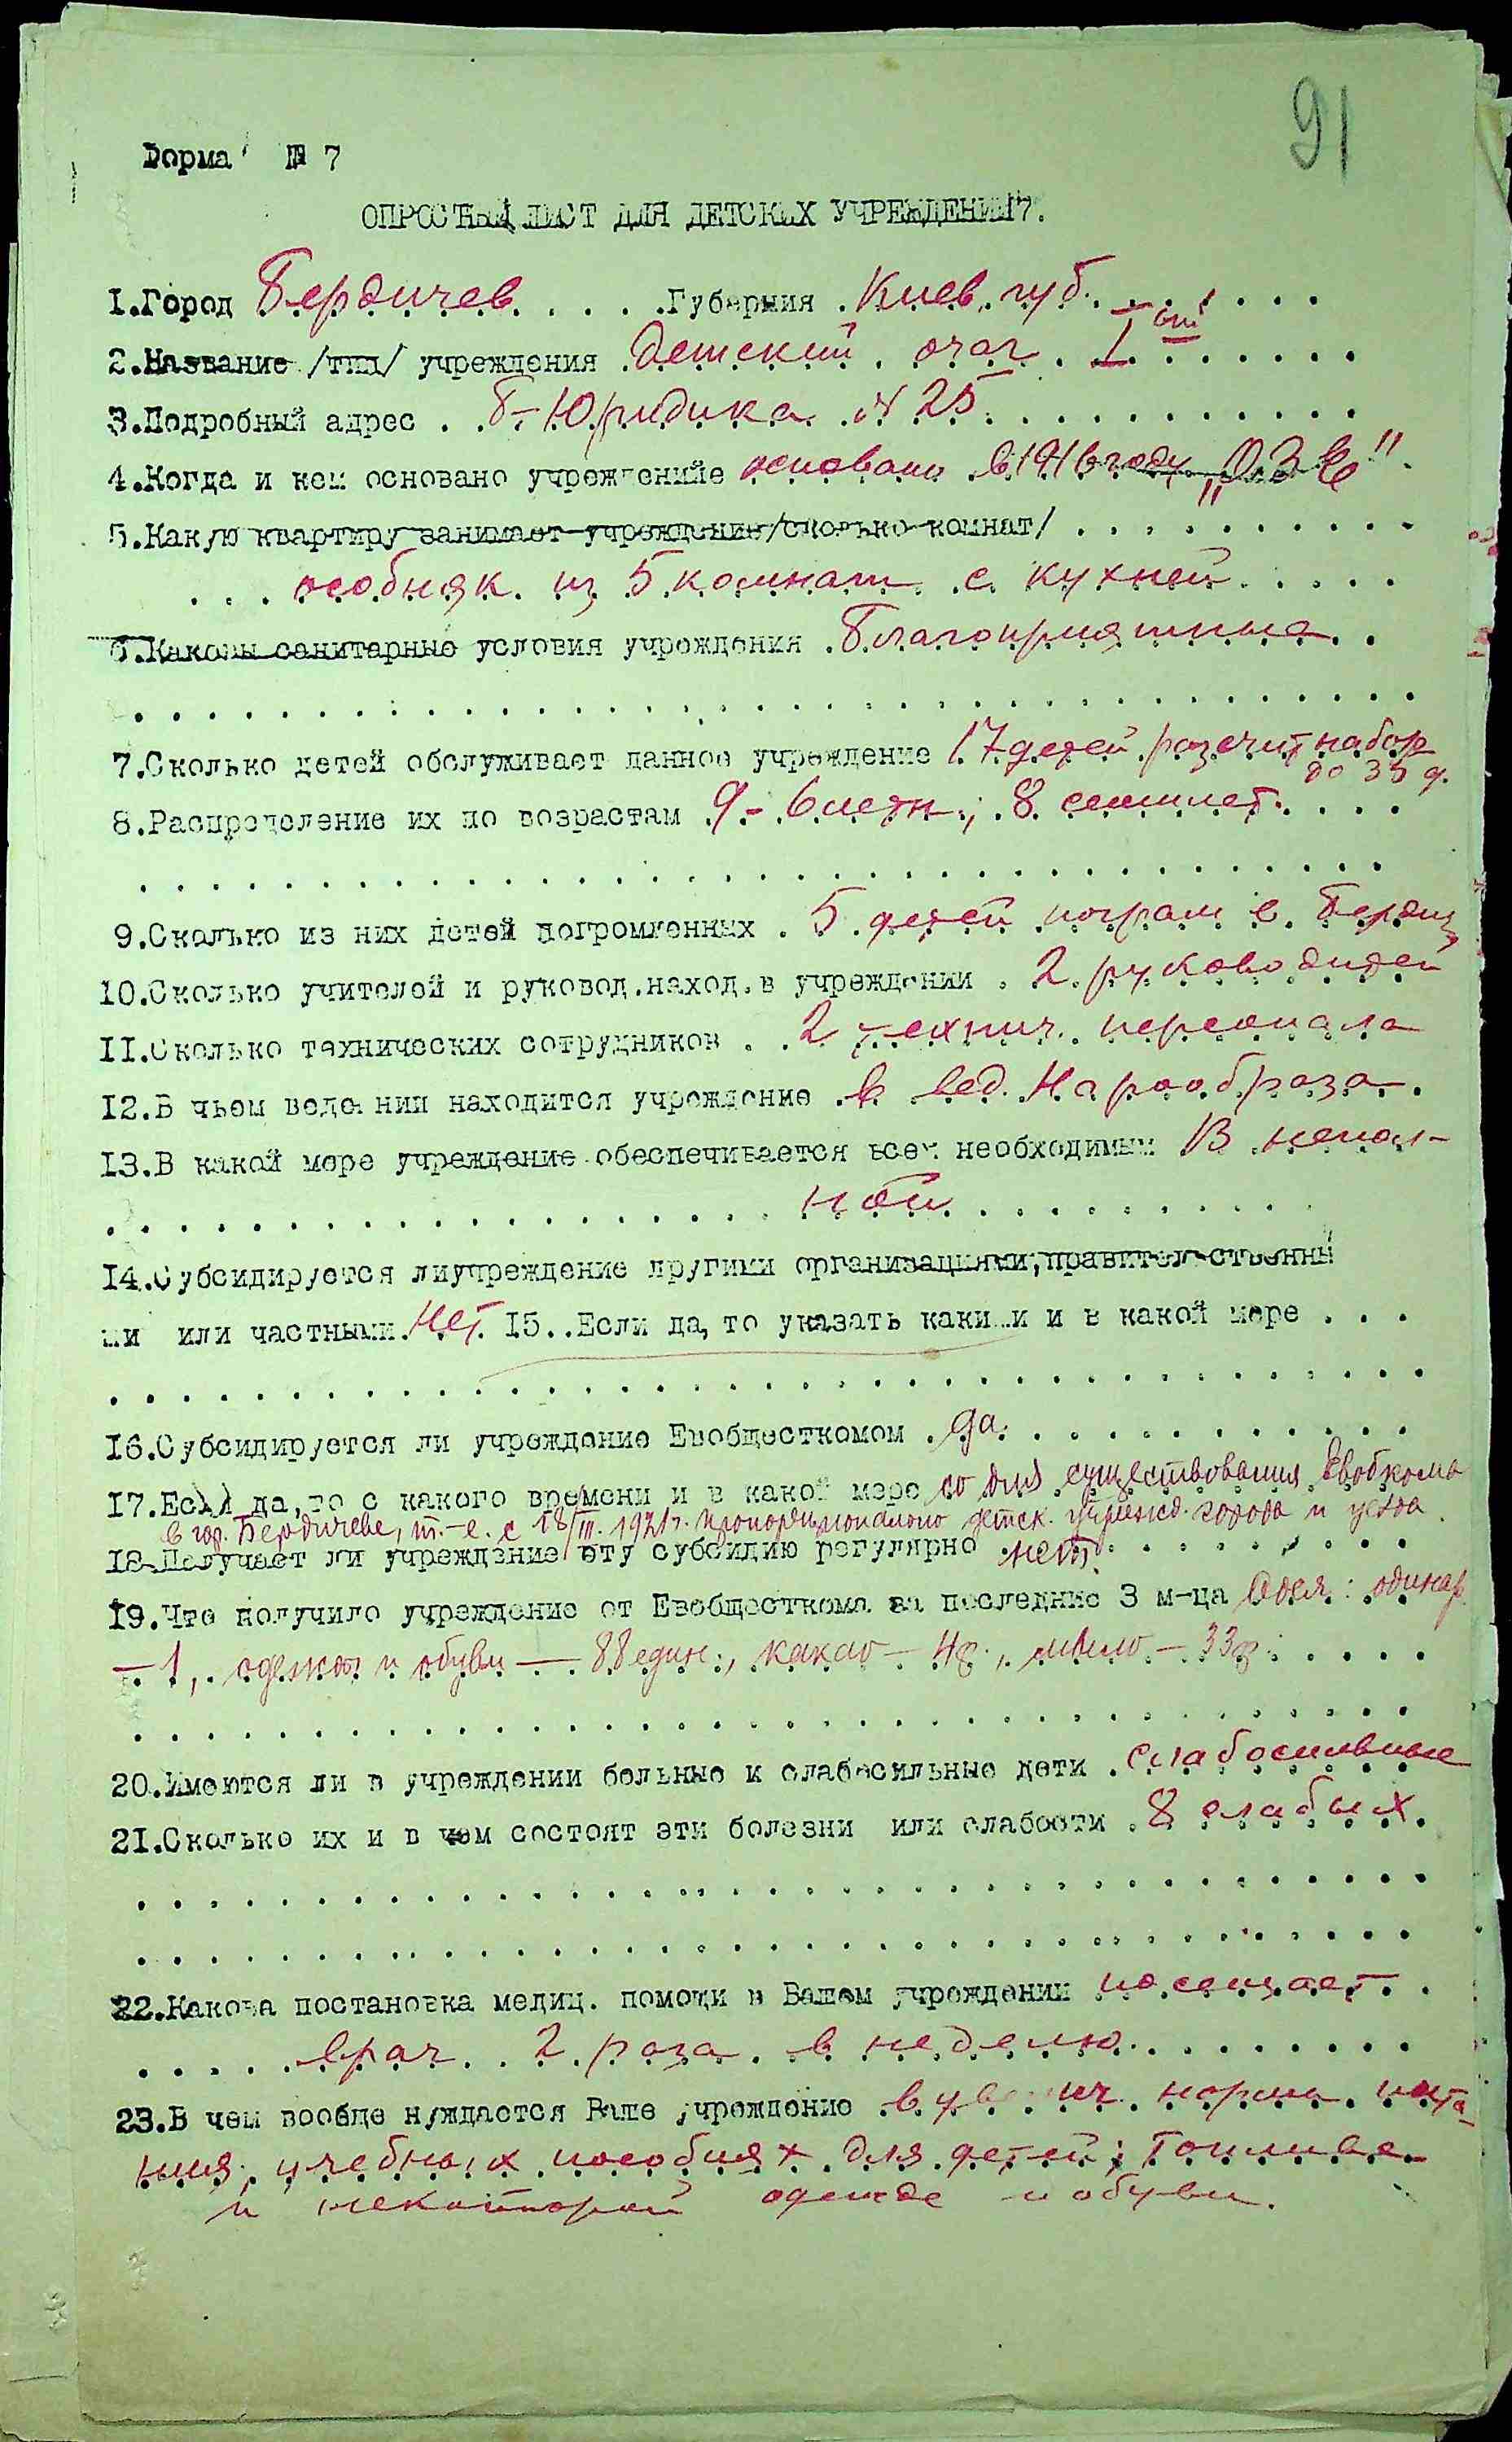 91
Форма № 7
ОПРОСНЫЙ ЛИСТ ДЛЯ ДЕТСКИХ УЧРЕЖДЕНИЙ 7.
1.Город Бердичев. . . . .Губерния .Киев. губ. . . . . . .
2.Название /тип/ учреждения .Детский. очаг. I ый . . . . . .
3.Подробный адрес . .Б-Юридика. № 25. . . . . . . . . . .
4.Когда и кем основано учреждение основано в 1916 году „ОЗЕ".
5.Какую квартиру занимает учреждение/сколько комнат/ . . . . . . . . . .
. . . особняк. из 5 комнат с кухней. . . . .
6.Каковы санитарные условия учреждения .Благоприятные. .
. . . . . . . . . . . . . . . . . . . . . . . . . . . . . . . . . . . .
7.Сколько детей обслуживает данное учреждение 17 детей расчит набор
до 35 д.
8.Распределение их по возрастам .9 - 6 летн.; 8 семилет. . . . .
. . . . . . . . . . . . . . . . . . . . . . . . . . . . . . . . . . . .
9.Сколько из них детей погромленных . 5 детей погром в. Бердич.
10.Сколько учителей и руковод.наход.в учреждении . 2 руководител
11.Сколько технических сотрудников . . 2 технич. персонала
12.В чьем ведении находится учреждение .в вед. Нарообраза.
13.В какой мере учреждение обеспечивается всем необходимым В непол-
. . . . . . . . . . . . . . . . . . . ной . . . . . . . . . . .
14.Субсидируется ли учреждение другими организациями,правительственны
ми или частными.Нет. 15..Если да, то указать какими и в какой мере . . .
. . . . . . . . . . . . . . . . . . . . . . . . . . . . . . . . . . . .
16.Субсидируется ли учреждение Евобщесткомом .да. . . . . . . . . . . .
17.Если да,то с какого времени и в какой мере со дня существования Евобкома
в гор. Бердичеве, т.-е. с 18/III. 1921г. пропорционально детск. учрежд. города и уезда.
18.Получает ли учреждение эту субсидию регулярно .нет. . . . . . . . . .
19.Что получило учреждение от Евобщесткома за последние 3 м-ца Одеял: одинар.
— 1, одежды и обуви — 88 един., какао — 4ф., мыло — 33ф. . . . . .
. . . . . . . . . . . . . . . . . . . . . . . . . . . . . . . . . . . .
20.Имеются ли в учреждении больные и слабосильные дети .слабосильные
21.Сколько их и в чем состоят эти болезни или слабости .8 слабых.
. . . . . . . . . . . . . . . . . . . . . . . . . . . . . . . . . . . .
. . . . . . . . . . . . . . . . . . . . . . . . . . . . . . . . . . . .
22.Какова постановка медиц. помощи в Вашем учреждении посещает. .
. . . . . .врач. . 2 раза. в неделю. . . . . . . . . .
23.В чем вообще нуждается Ваше учреждение .в нормы пита-
ния, учебных пособиях для детей; топливе
и некоторой одежде и обуви.